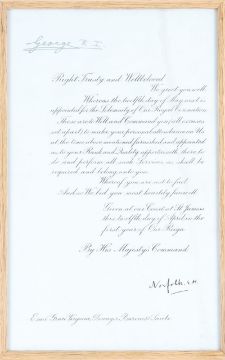 George R.I.
Right Trusty and Wellbeloved
We greet you well
Whereas the twelfth day of May next is
appointed for the Solemnity of Our Royal Coronation
These are to Will and Command you (all excuses
set apart) to make your personal attendance on Us
at the time above mentioned furnished and appointed
as to your Rank and Quality appertaineth there to
do and perform all such Services as shall be
required and belong unto you
Whereof you are not to fail
And so We bid you most heartily farewell
Given at our Court at St James's
this twelfth day of April in the
first year of Our Reign
By His Majesty's Command.
Norfolk. E.M.
Grace Virginia, Dowager Baroness